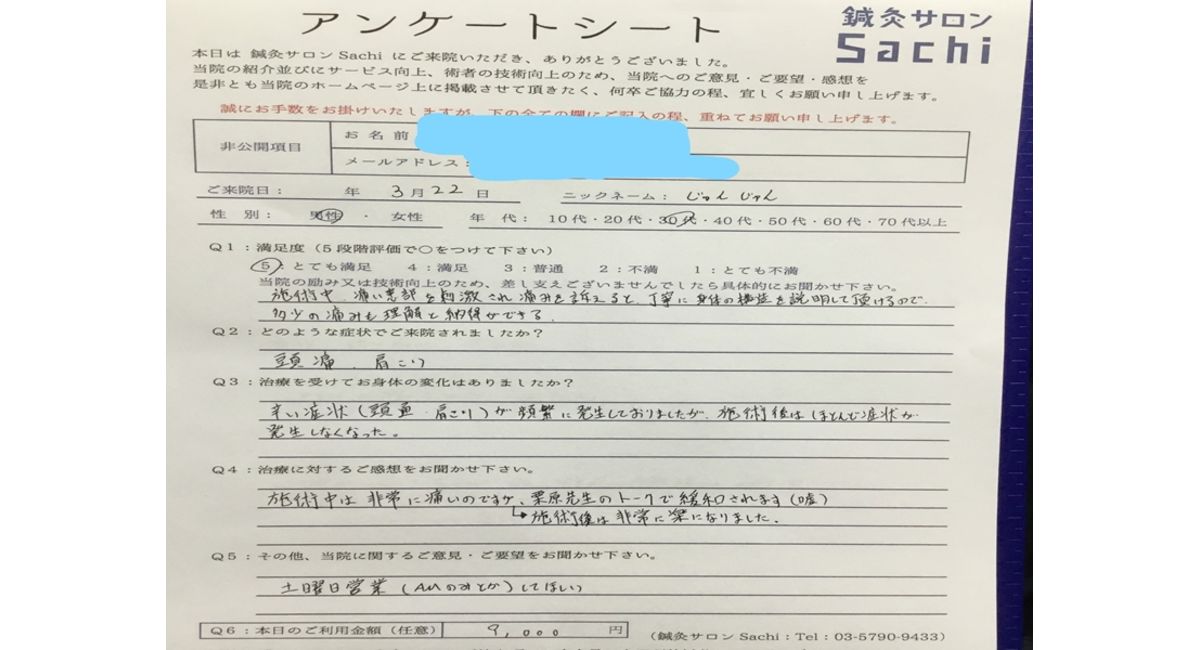 アンケートシート
鍼灸サロン
Sachi
本日は 鍼灸サロン Sachi にご来院いただき、ありがとうございました。
当院の紹介並びにサービス向上、術者の技術向上のため、当院へのご意見・ご要望・感想を
是非とも当院のホームページ上に掲載させて頂きたく、何卒ご協力の程、宜しくお願い申し上げます。
誠にお手数をお掛けいたしますが、下の全ての欄にご記入の程、重ねてお願い申し上げます。
非公開項目
お名前
メールアドレス:
ご来院日: 年 3月22日 ニックネーム: じゅんじゅん
性別: 男性・女性 年代: 10代・20代・30代・40代・50代・60代・70代以上
Q1:満足度(5段階評価で〇をつけて下さい)
5:とても満足 4:満足 3:普通 2:不満 1:とても不満
当院の励み又は技術向上のため、差し支えございませんでしたら具体的にお聞かせ下さい。
施術中、痛い患部を刺激され痛みを訴えると、丁寧に身体の構造を説明して頂けるので、
多少の痛みも理解と納得ができる。
Q2:どのような症状でご来院されましたか?
頭痛、肩こり
Q3:治療を受けてお身体の変化はありましたか?
辛い症状(頭通・肩こり)が頻繁に発生しておりましたが、施術後はほとんど症状が
発生しなくなった。
Q4:治療に対するご感想をお聞かせ下さい。
施術中は非常に痛いのですが、栗原先生のトークで緩和されます(嘘)
↳施術後は非常に楽になりました。
Q5:その他、当院に関するご意見・ご要望をお聞かせ下さい。
土曜日営業(AMのみとか)してほしい
Q6:本日のご利用金額(任意) 9,000 円
(鍼灸サロン Sachi:Tel:03-5790-9433)